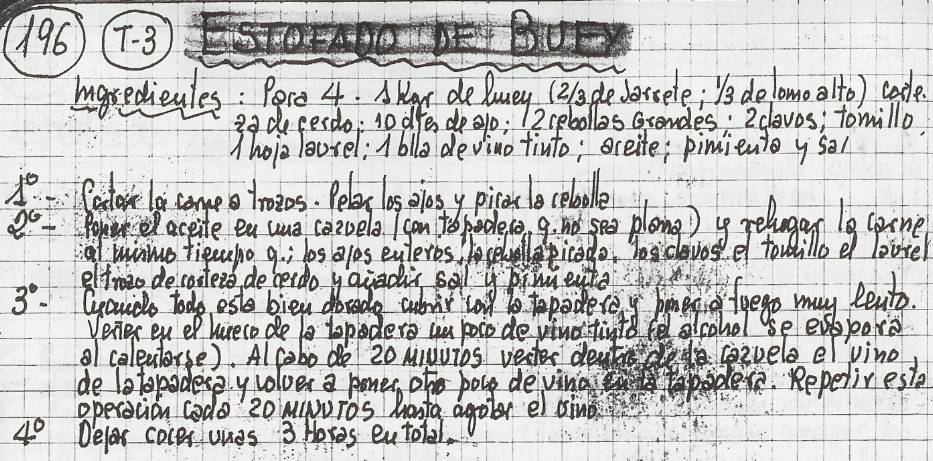 196 T-3 ESTOFADO DE BUEY
Ingredientes: Para 4. 1 Kgr de buey (2/3 de Jarrete; 1/3 de lomo alto) corte-
za de cerdo; 10 dtes de ajo; 2 cebollas Grandes; 2 clavos; tomillo
1 hoja laurel; 1 blla de vino tinto; aceite; pimienta y sal
1º- Cortar la carne a trozos. Pelar los ajos y picar la cebolla
2º- Poner el aceite en una cazuela (con tapadera q. no sea plana) y rehogar la carne
al mismo tiempo q.; los ajos enteros, la cebolla picada, los clavos el tomillo el laurel
el trozo de corteza de cerdo y añadir sal y pimienta
3º- Cuando todo esta bien dorado cubrir con la tapadera y poner a fuego muy lento.
Verter en el hueco de la tapadera un poco de vino tinto (el alcohol se evapora
al calentarse). Al cabo de 20 MINUTOS verter dentro de la cazuela el vino
de la tapadera y volver a poner otro poco de vino en la tapadera. Repetir esta
operación cada 20 MINUTOS hasta agotar el vino
4º Dejar cocer unas 3 Horas en total.